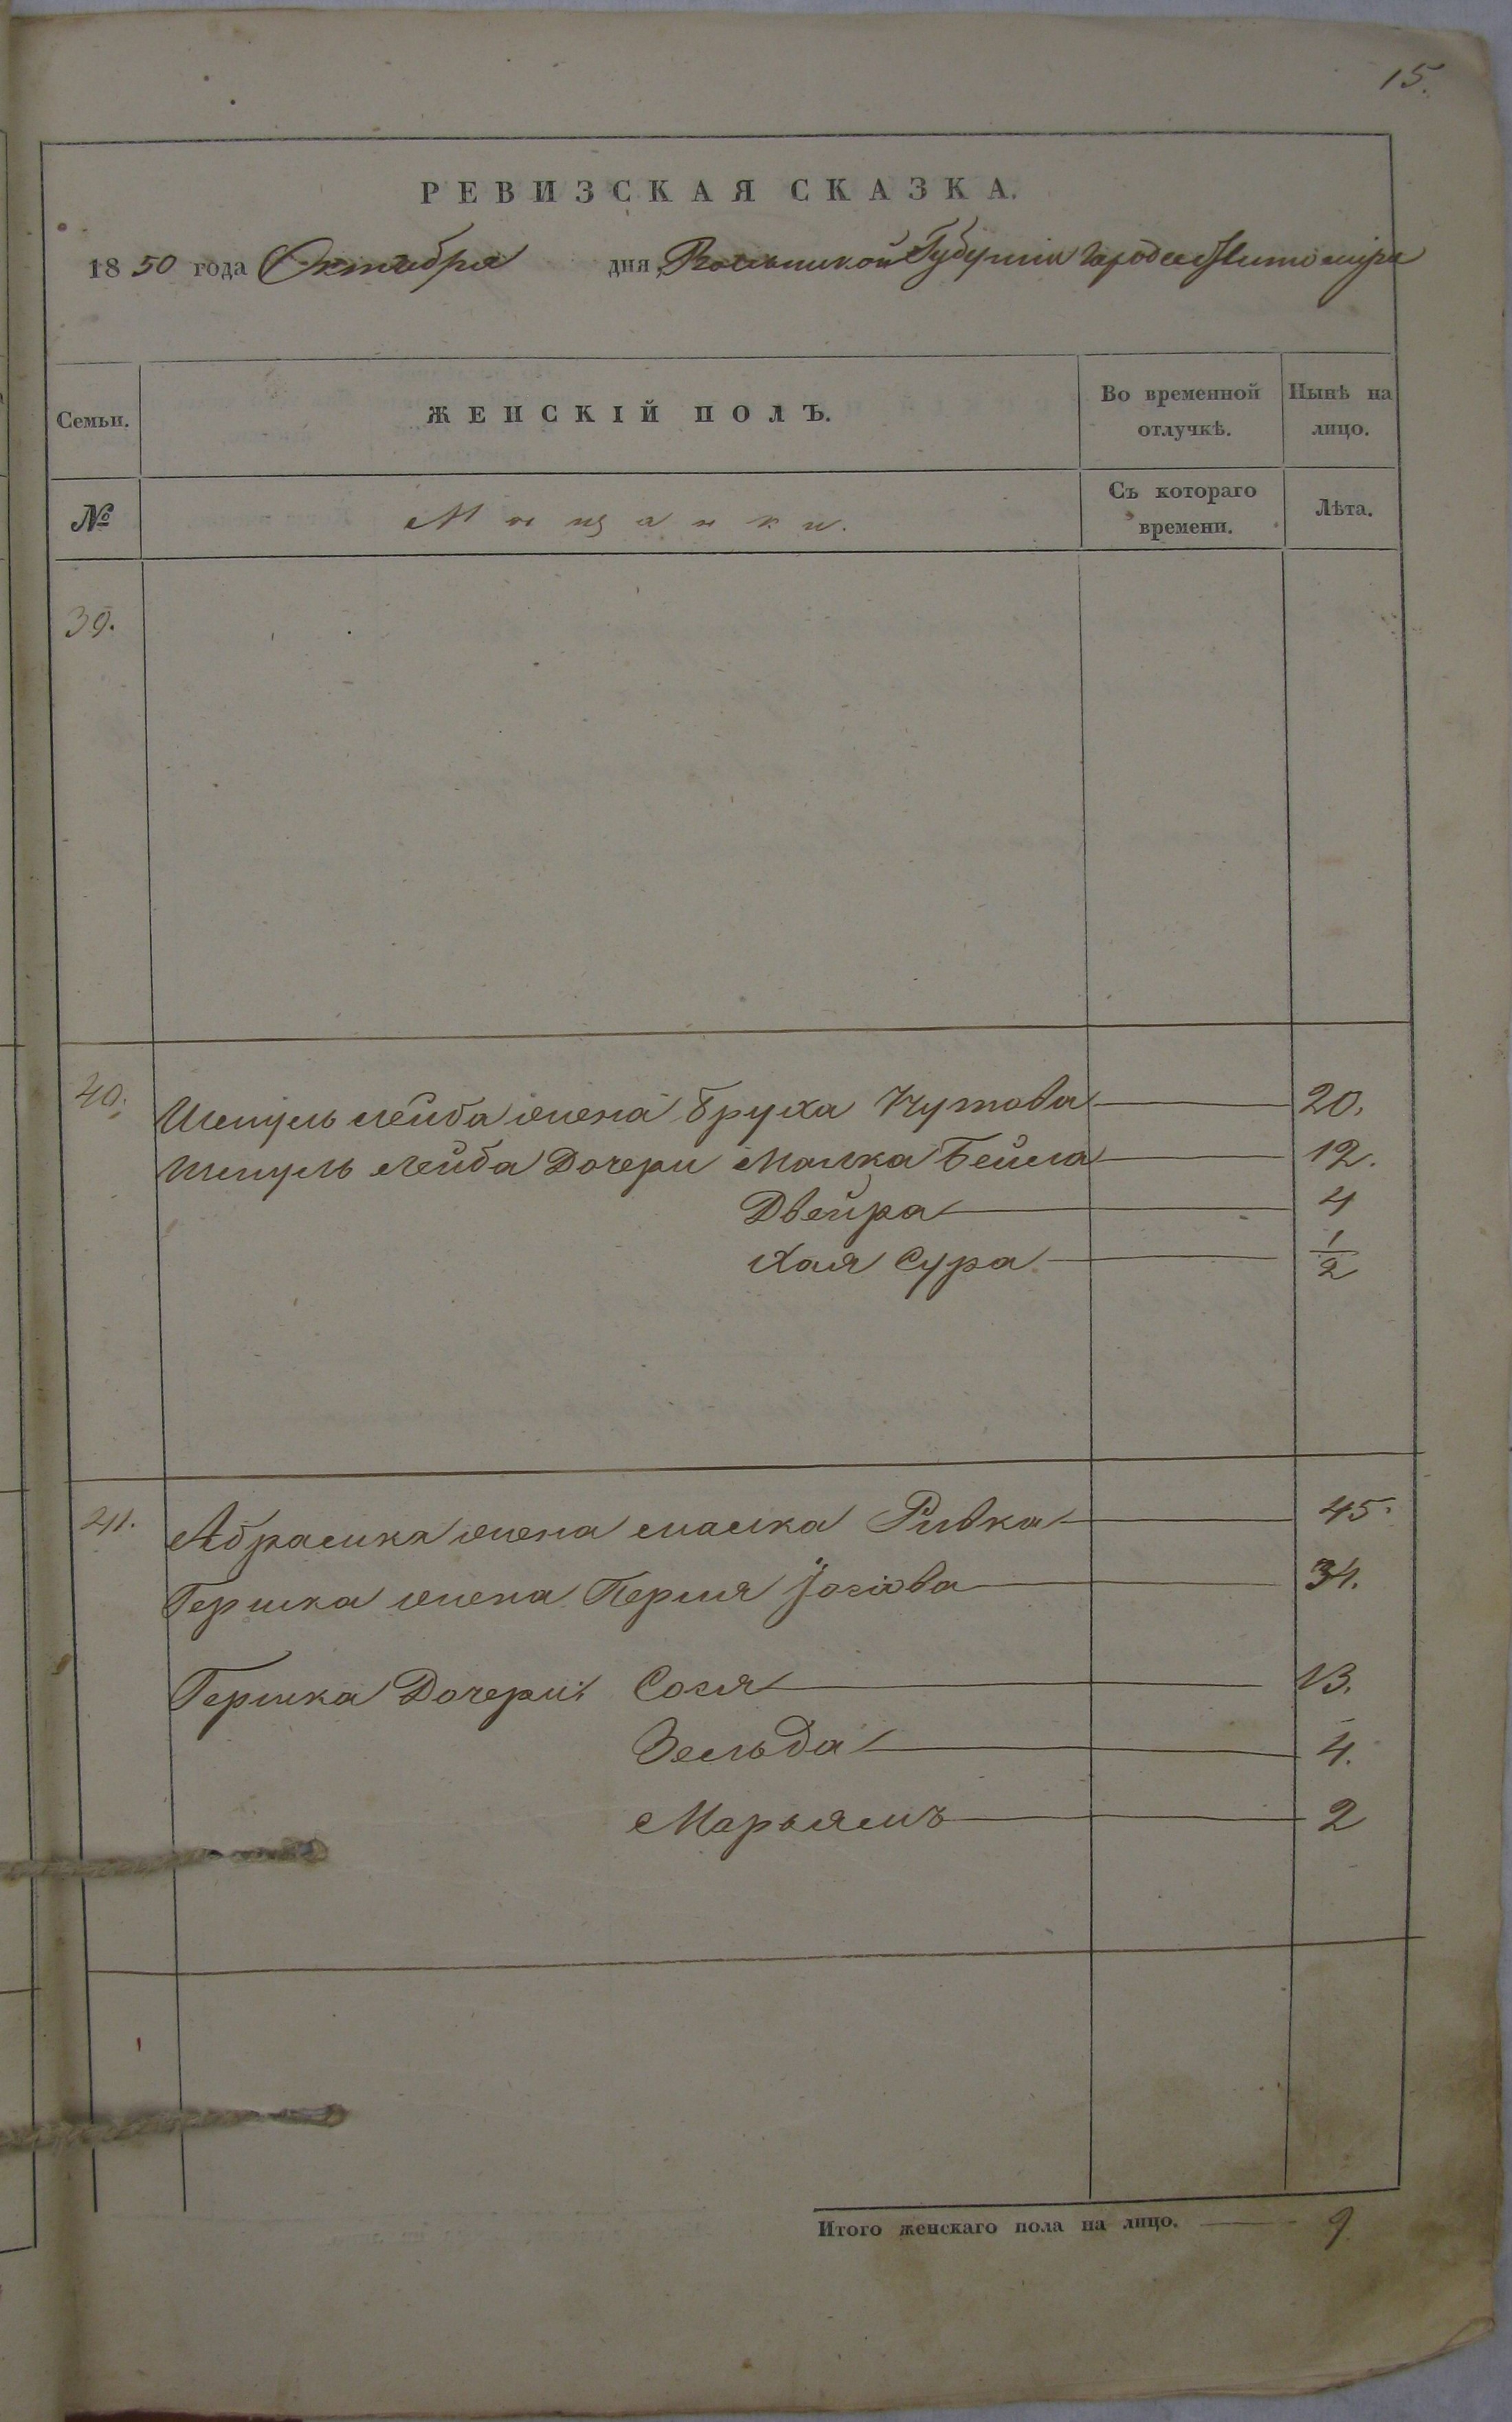 15.
РЕВИЗСКАЯ СКАЗКА.
1850 года Октября дня, Волынской Губерніи города Житоміра
Семьи. ЖЕНСКІЙ ПОЛЪ. Во временной отлучкѣ. Нынѣ на лицо.
№ Мѣщанки. Съ котораго времени. Лѣта.
39.
40. Шмуль Лейба жена Бруха 20.
Шмуль Лейба Дочери Малка Бейла 12.
Двейра 4
Хая Сура 1/2
41. Абрамка жена Малка Ривка 45.
Гершка жена Перля Іосіова 34.
Гершка Дочери: Сося 13.
Зельда 4.
Марьямъ 2
Итого женскаго пола на лицо. 9